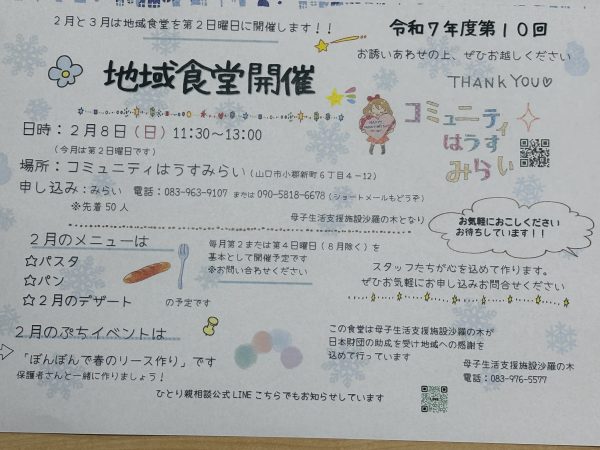 ２月と３月は地域食堂を第２日曜日に開催します！！
令和７年度第１０回
お誘いあわせの上、ぜひお越しください
地域食堂開催
THANK YOU♡
コミュニティ
はうす
みらい
日時：２月８日（日）11:30～13:00
（今月は第２日曜日です）
場所：コミュニティはうすみらい（山口市小郡新町６丁目４－12）
申し込み：みらい 電話：083-963-9107 または 090-5818-6678（ショートメールもどうぞ）
※先着50人
母子生活支援施設沙羅の木となり
お気軽におこしください
お待ちしています！！
２月のメニューは
☆パスタ
☆パン
☆２月のデザート の予定です
毎月第２または第４日曜日（８月除く）を
基本として開催予定です
※お問い合わせください
スタッフたちが心を込めて作ります。
ぜひお気軽にお申し込みお問合せください
２月のぷちイベントは
「ぽんぽんで春のリース作り」です
保護者さんと一緒に作りましょう！
この食堂は母子生活支援施設沙羅の木が
日本財団の助成を受け地域への感謝を
込めて行っています
母子生活支援施設沙羅の木
電話：083-976-5577
ひとり親相談公式LINEこちらでもお知らせしています